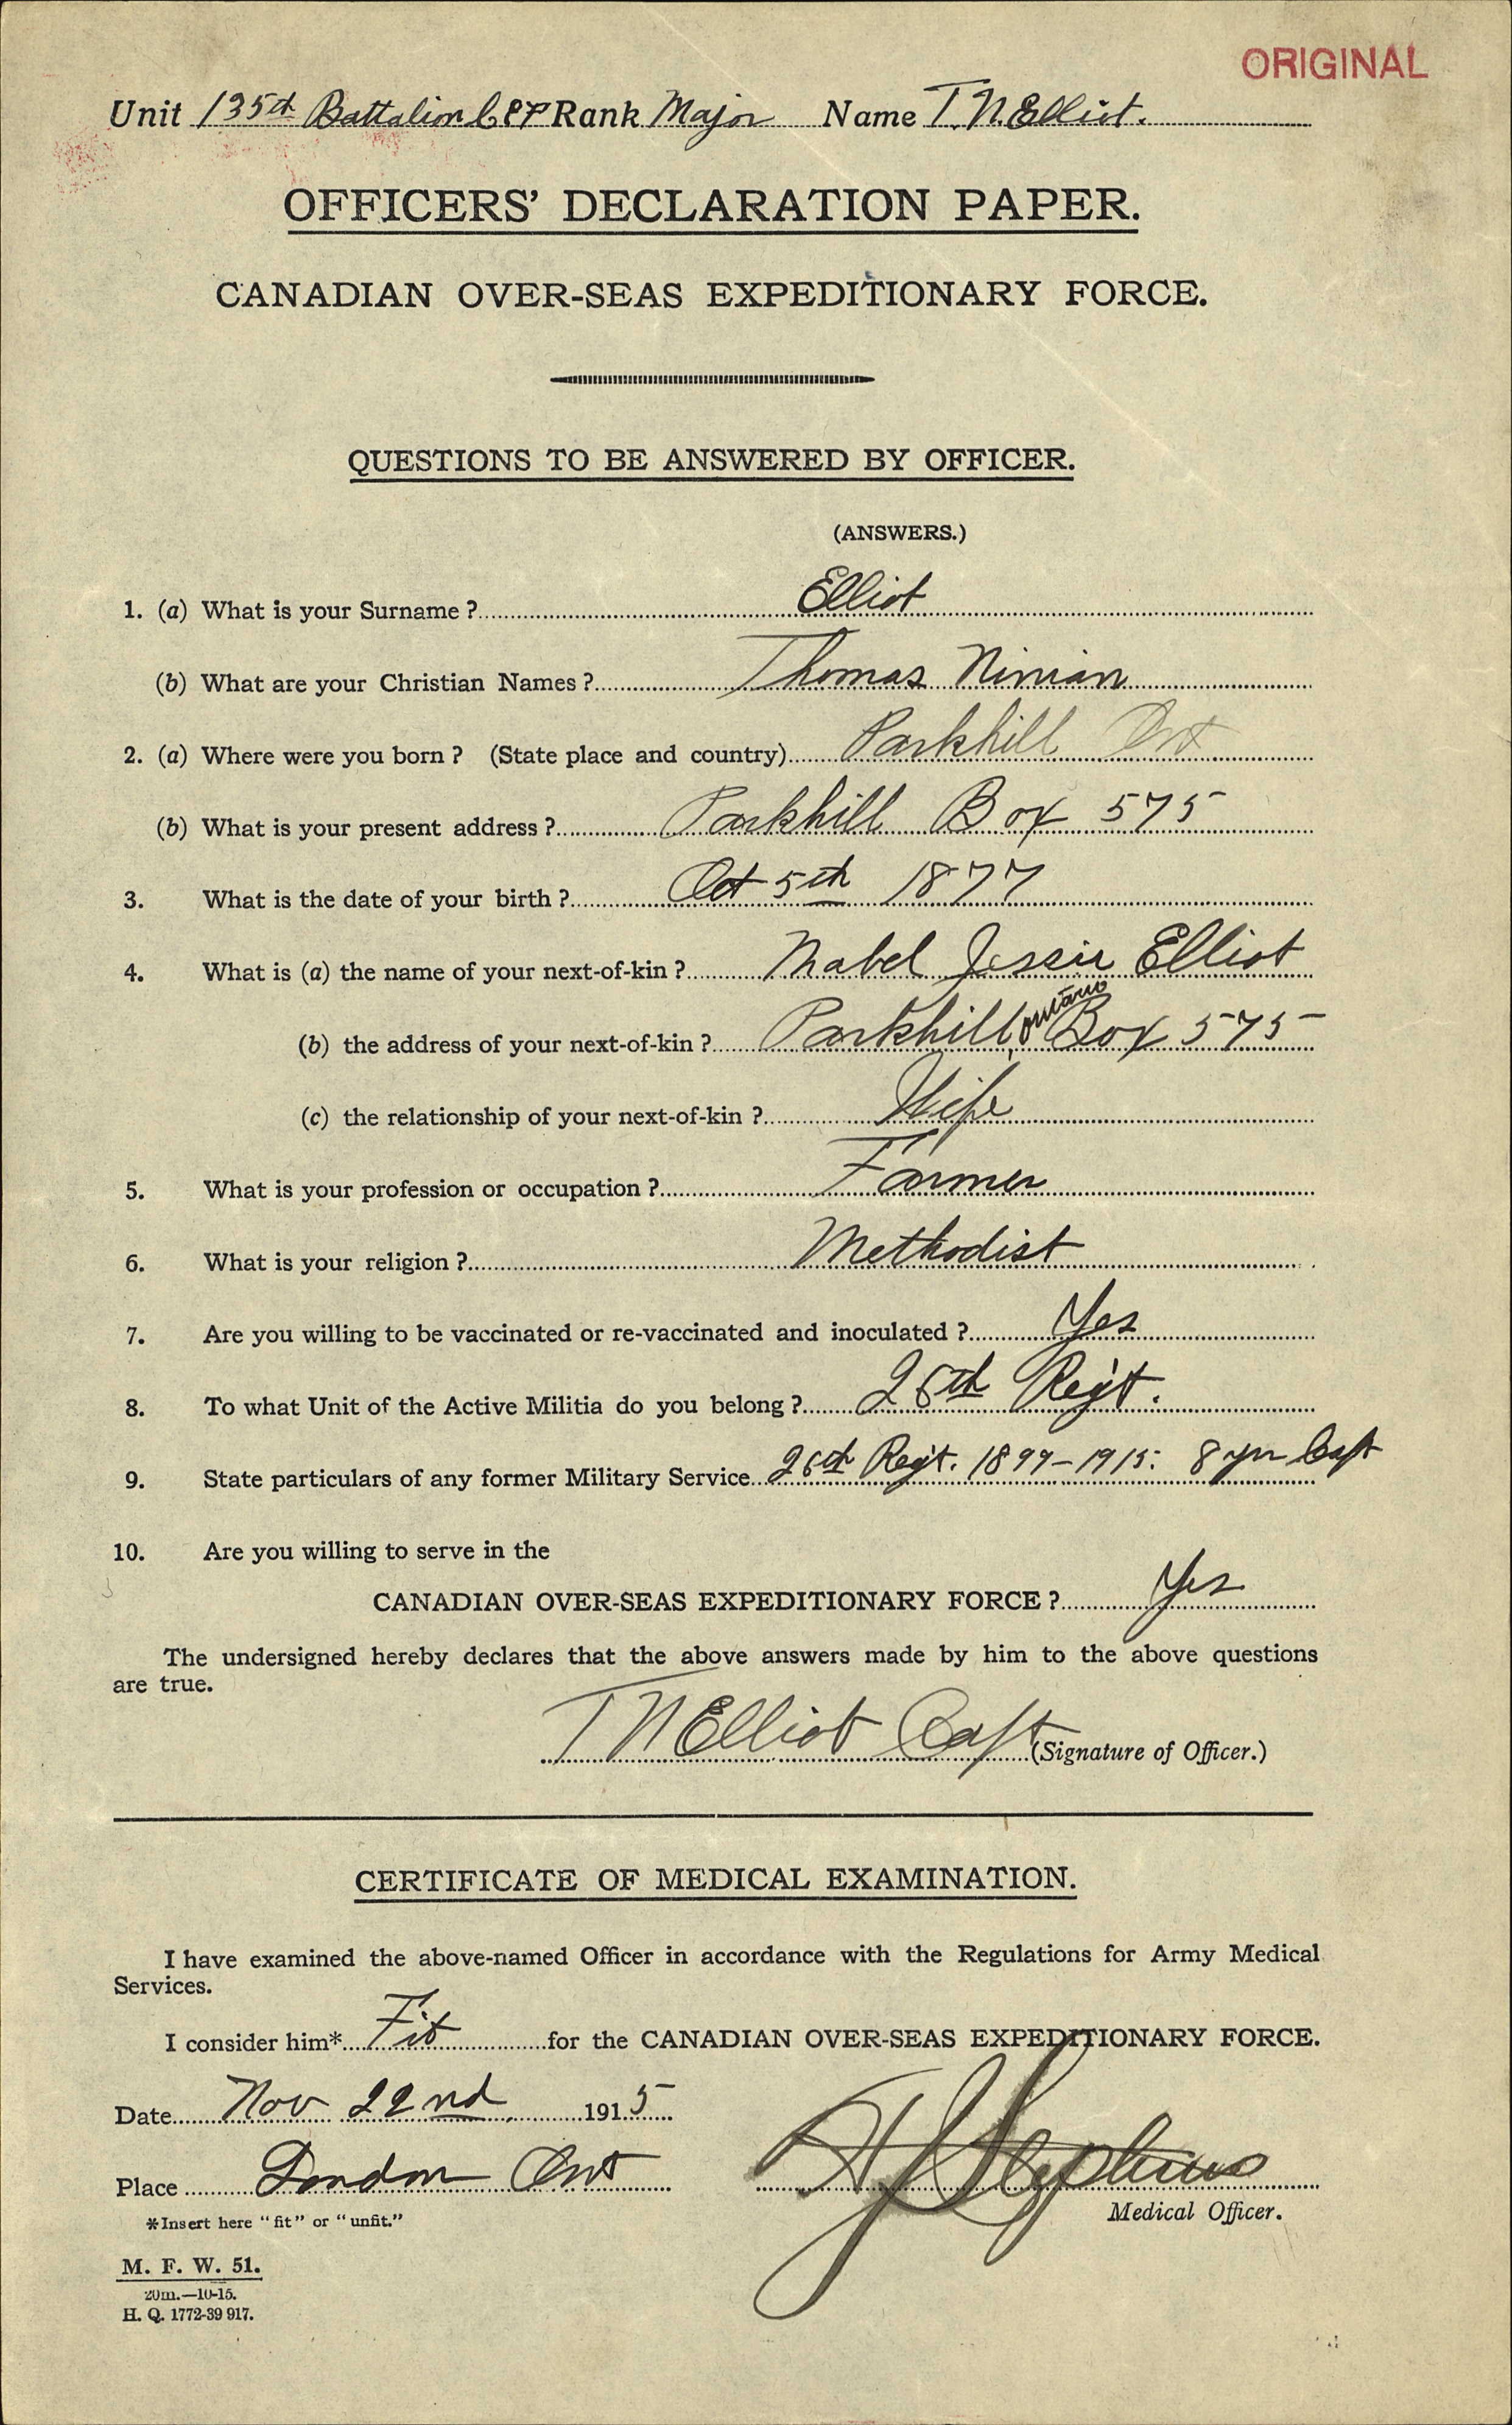 ORIGINAL
Unit 135th Battalion C E F Rank Major Name T. N. Elliot.
OFFICERS' DECLARATION PAPER.
CANADIAN OVER-SEAS EXPEDITIONARY FORCE.
QUESTIONS TO BE ANSWERED BY OFFICER.
(ANSWERS.)
1. (a) What is your Surname ? Elliot
(b) What are your Christian Names ? Thomas Ninian
2. (a) Where were you born ? (State place and country) Parkhill Ont
(b) What is your present address ? Parkhill Box 575
3. What is the date of your birth ? Oct 5th 1877
4. What is (a) the name of your next-of-kin ? Mabel Jessie Elliot
(b) the address of your next-of-kin ? Parkhill, Ontario Box 575
(c) the relationship of your next-of-kin ? Wife
5. What is your profession or occupation ? Farmer
6. What is your religion ? Methodist
7. Are you willing to be vaccinated or re-vaccinated and inoculated ? Yes
8. To what Unit of the Active Militia do you belong ? 26th Reg't.
9. State particulars of any former Military Service 26th Reg't. 1899-1915. 8 yrs Capt
10. Are you willing to serve in the
CANADIAN OVER-SEAS EXPEDITIONARY FORCE ? Yes
The undersigned hereby declares that the above answers made by him to the above questions
are true.
T N Elliot Capt (Signature of Officer.)
CERTIFICATE OF MEDICAL EXAMINATION.
I have examined the above-named Officer in accordance with the Regulations for Army Medical
Services.
I consider him* Fit for the CANADIAN OVER-SEAS EXPEDITIONARY FORCE.
Date Nov 22nd 1915
Place London Ont
Stephens
*Insert here "fit" or "unfit."
Medical Officer.
M. F. W. 51.
20m.—10-15.
H. Q. 1772-39 917.